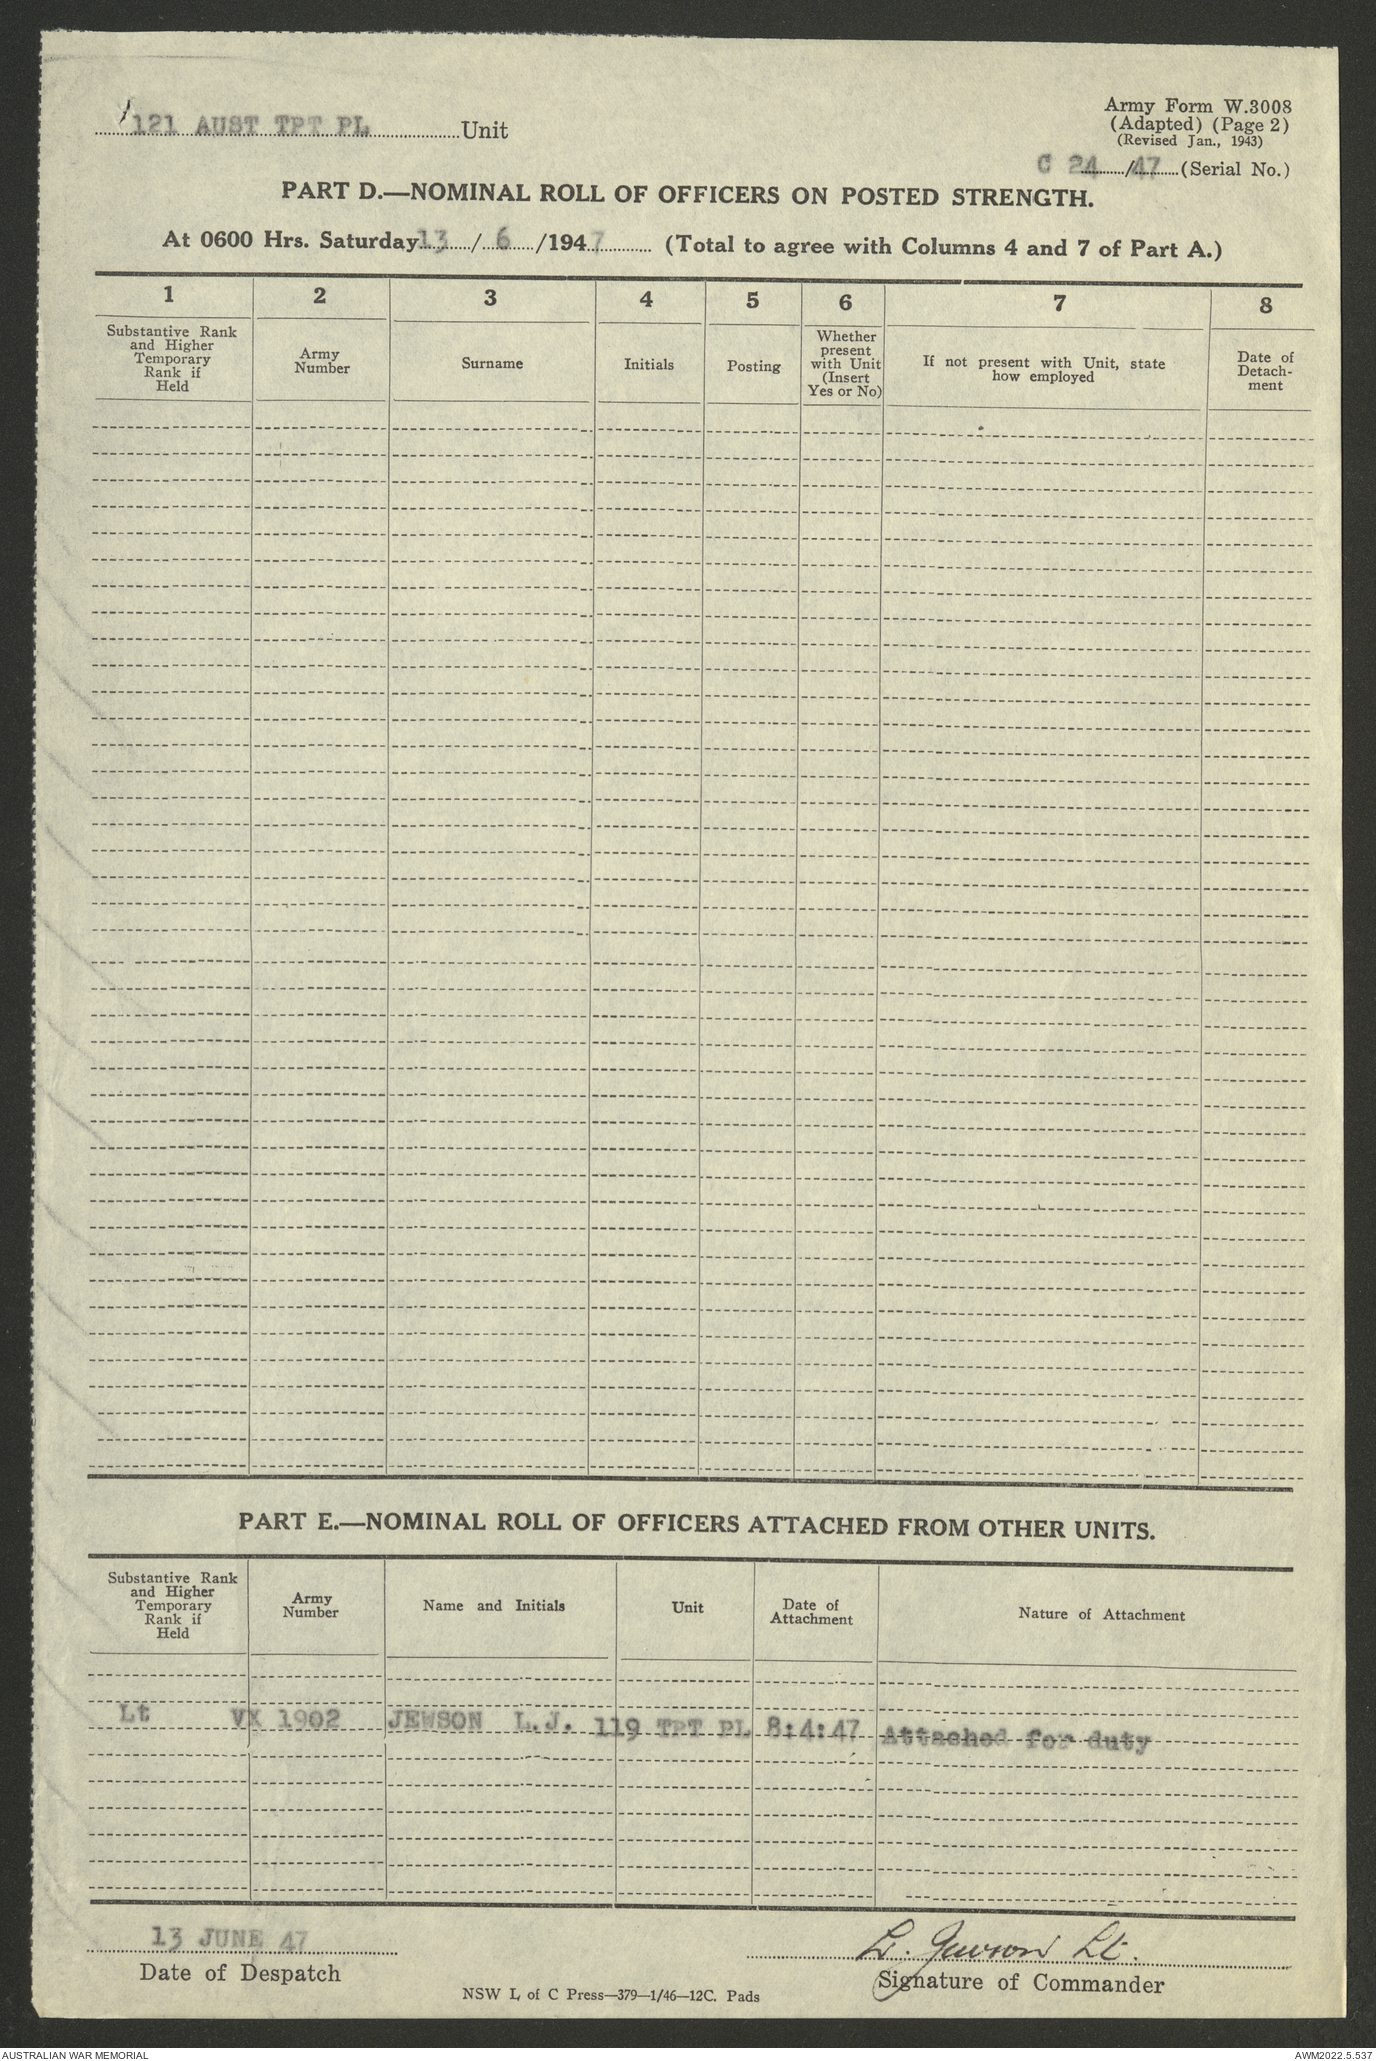 121 AUST TPT PL Unit
Army Form W.3008
(Adapted) (Page 2)
(Revised Jan., 1943)
C 24/47 (Serial No.)
PART D.—NOMINAL ROLL OF OFFICERS ON POSTED STRENGTH.
At 0600 Hrs. Saturday 13/6/1947 (Total to agree with Columns 4 and 7 of Part A.)
1 2 3 4 5 6 7 8
Substantive Rank
and Higher
Temporary
Rank if
Held
Army
Number
Surname
Initials
Posting
Whether
present
with Unit
(Insert
Yes or No)
If not present with Unit, state
how employed
Date of
Detach-
ment
PART E.—NOMINAL ROLL OF OFFICERS ATTACHED FROM OTHER UNITS.
Substantive Rank
and Higher
Temporary
Rank if
Held
Army
Number
Name and Initials
Unit
Date of
Attachment
Nature of Attachment
Lt VX 1902 JEWSON L.J. 119 TPT PL 8:4:47 Attached for duty
13 JUNE 47
Date of Despatch
L. Jewson Lt.
Signature of Commander
NSW L of C Press—379—1/46—12C. Pads
AUSTRALIAN WAR MEMORIAL
AWM2022.5.537